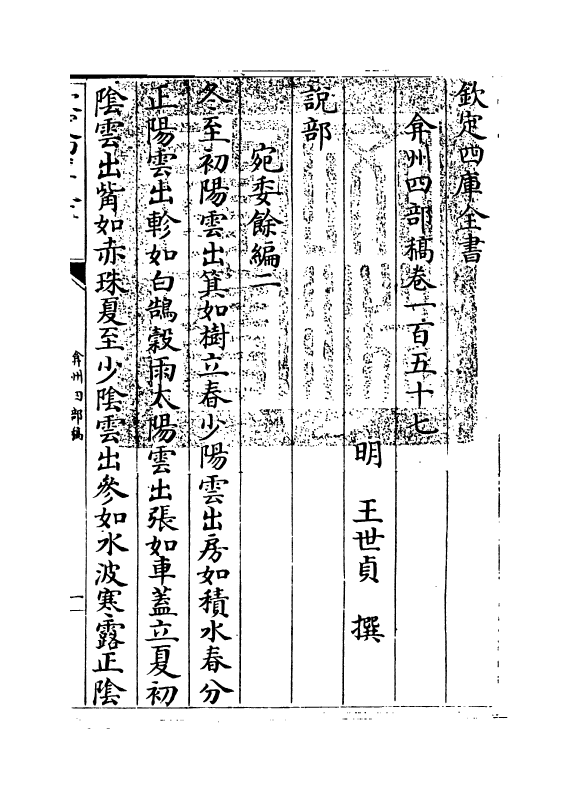 欽定四庫全書
弇州四部稿卷一百五十七
明 王世貞 撰
說部
宛委餘編二
冬至初陽雲出箕如樹立春少陽雲出房如積水春分
正陽雲出軫如白鵠穀雨太陽雲出張如車蓋立夏初
陰雲出觜如赤珠夏至少陰雲出參如水波寒露正陰
弇州四部稿
一